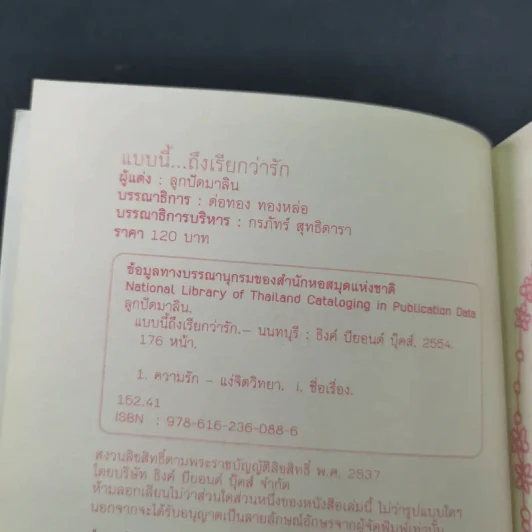 แบบนี้...ถึงเรียกว่ารัก
ผู้แต่ง : ลูกปัดมาลิน
บรรณาธิการ : ต่อทอง ทองหล่อ
บรรณาธิการบริหาร : กรภัทร์ สุทธิดารา
ราคา 120 บาท
ข้อมูลทางบรรณานุกรมของสำนักหอสมุดแห่งชาติ
National Library of Thailand Cataloging in Publication Data
ลูกปัดมาลิน.
แบบนี้ถึงเรียกว่ารัก.– นนทบุรี : ธิงค์ บียอนด์ บุ๊คส์, 2554.
176 หน้า.
1. ความรัก – แง่จิตวิทยา. I. ชื่อเรื่อง.
152.41
ISBN : 978-616-236-088-6
สงวนลิขสิทธิ์ตามพระราชบัญญัติลิขสิทธิ์ พ.ศ. 2537
โดยบริษัท ธิงค์ บียอนด์ บุ๊คส์ จำกัด
ห้ามลอกเลียนไม่ว่าส่วนใดส่วนหนึ่งของหนังสือเล่มนี้ ไม่ว่ารูปแบบใดๆ
นอกจากจะได้รับอนุญาตเป็นลายลักษณ์อักษรจากผู้จัดพิมพ์เท่านั้น